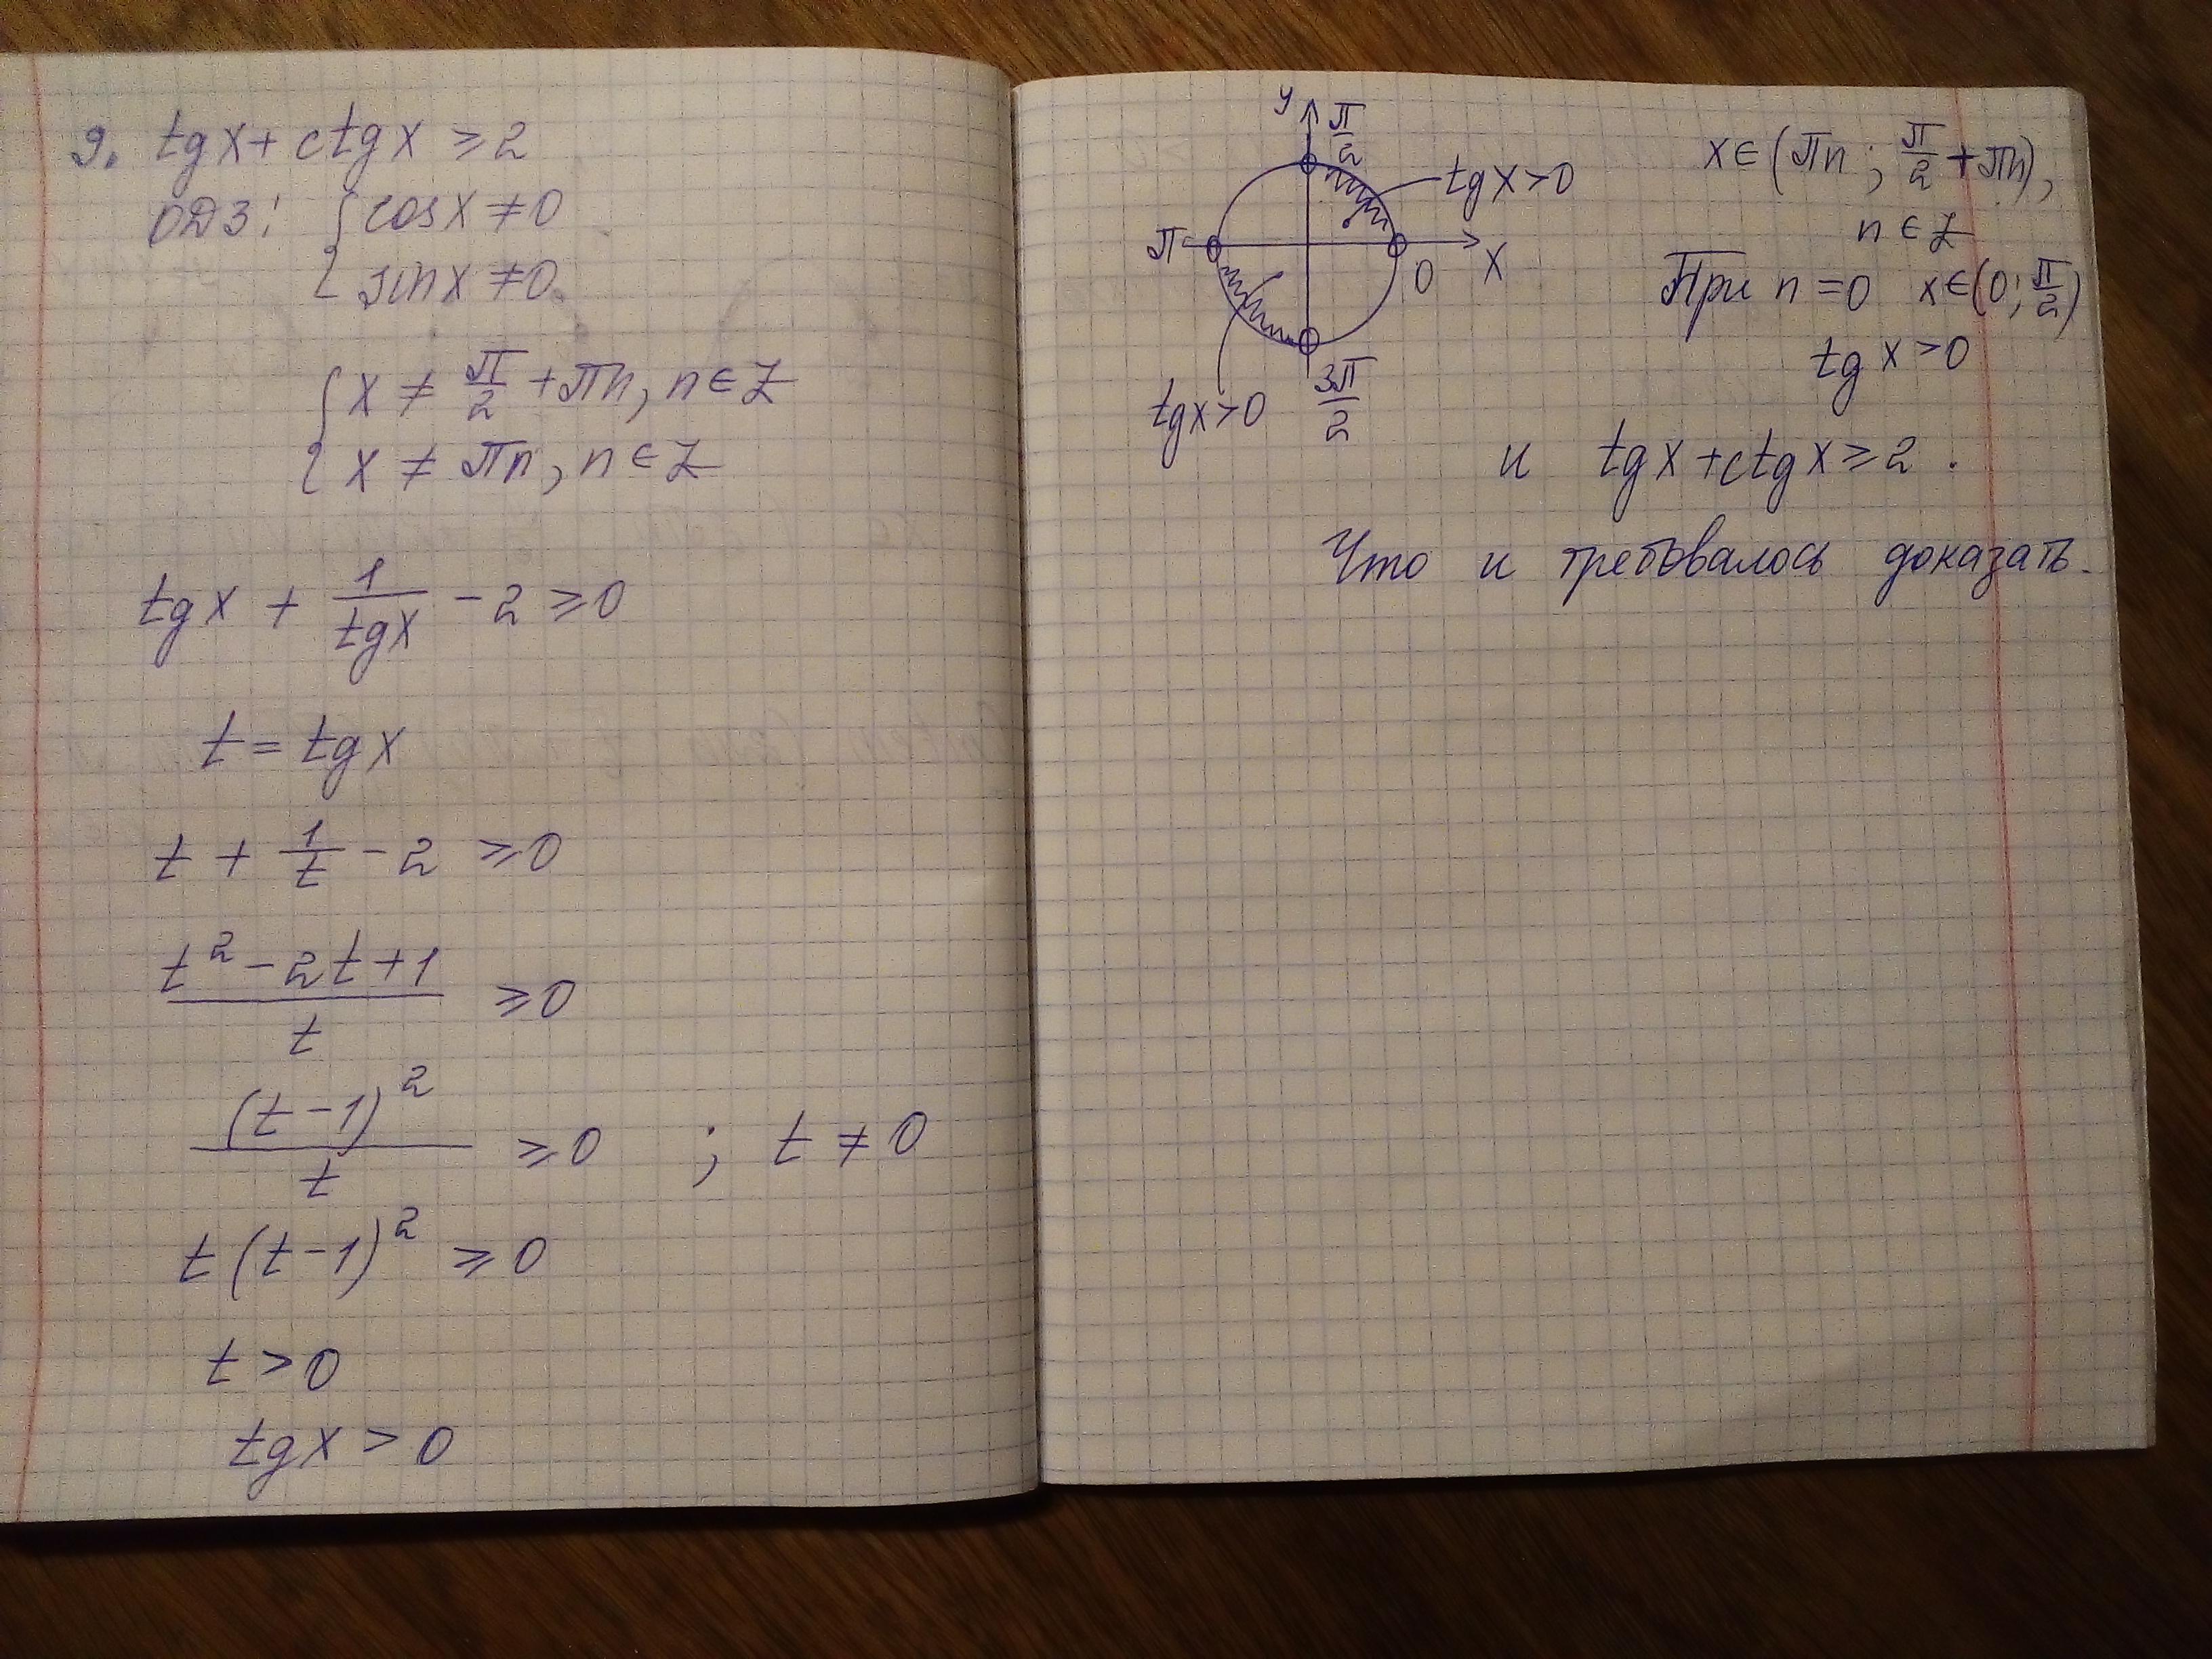 9. tgx + ctgx ≥ 2
ОДЗ: { cosx ≠ 0
{ sinx ≠ 0
{ x ≠ π/2 + πn, n ∈ Z
{ x ≠ πn, n ∈ Z
tgx + 1/tgx - 2 ≥ 0
t = tgx
t + 1/t - 2 ≥ 0
(t² - 2t + 1)/t ≥ 0
(t-1)²/t ≥ 0 ; t ≠ 0
t(t-1)² ≥ 0
t > 0
tgx > 0
y
π/2
tgx > 0
π
0
x
tgx > 0
3π/2
x ∈ (πn ; π/2 + πn),
n ∈ Z
При n = 0 x ∈ (0; π/2)
tgx > 0
и tgx + ctgx ≥ 2.
Что и требовалось доказать.